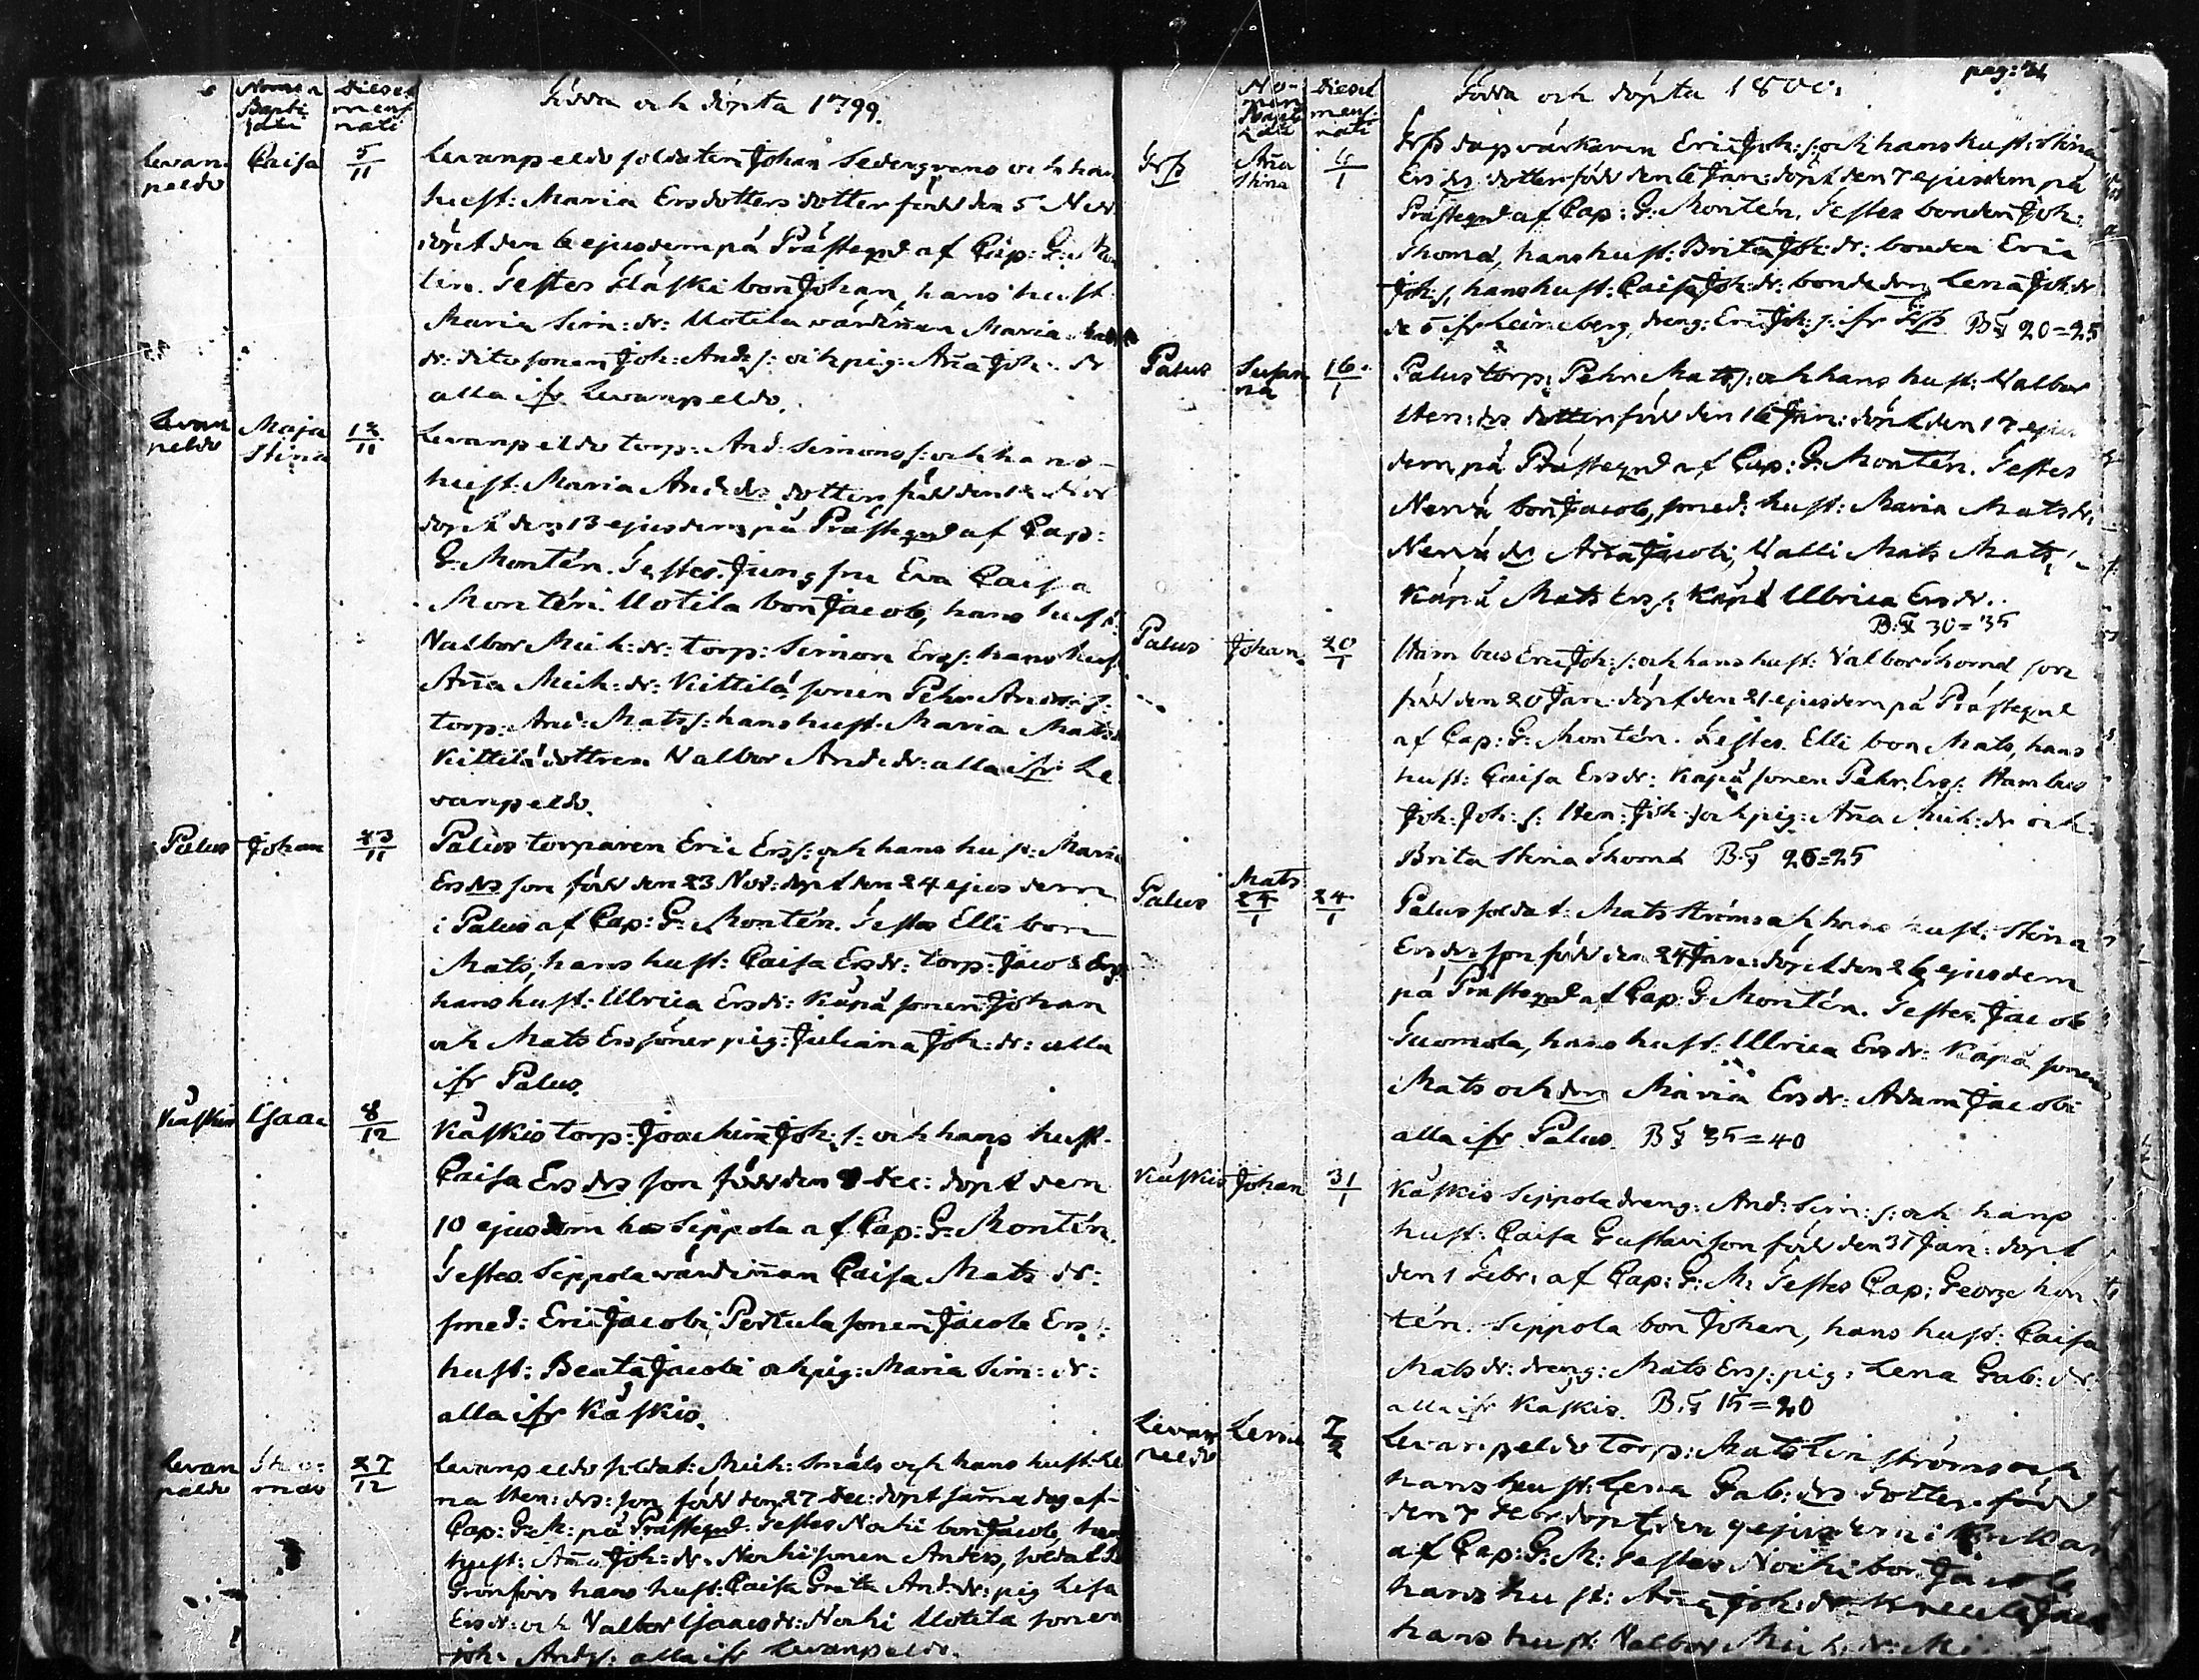 Nomen Bapti zati
Dies et mens nati
Födda och döpta 1799.
Levan peldo
Caisa
5/11
Levanpeldo soldaten Johan Sedergrens och hans
hust: Maria Ersdotters dotter född den 5 Nov:
döpt den 6 ejusdem på Prästegrd af Cap: G: Mon
tén. Testes bon Johan, hans hust
Maria Sim: dr: Uotila värdinnan Maria
dr: dito sonen Joh: And: s: och pig: Aña Joh: dr
alla ifr Levanpeldo.
Levan peldo
Maja Stina
12/11
Levanpeldo torp: And: Simons s: och hans
hust: Maria And: drs dotter född den 12 Nov
döpt den 13 ejusdem på Prästegrd af Cap:
G: Montén. Testes. Jungfru Eva Caisa
Montén. Uotila bon Jacob, hans hust:
Valbor Mich: dr: torp: Simon Ers s: hans hust
Aña Mich: dr: Kittilä sonen Pehr And: s:
torp: And: Mats s: hans hust: Maria Mats
Kittilä dottren Valbor And: dr: alla ifr Le
vanpeldo.
Palus
Johan
23/11
Palus torparen Eric Ers s: och hans hust: Maria
Ersdrs son född den 23 Nov: döpt den 24 ejusdem
i Palus af Cap: G: Montén. Testes Elli bon
Mats, hans hust: Caisa Ersdr: torp: Jacob Ers:
hans hust: Ulrica Ersdr: Käpä sonen Johan
och Mats Erssöner pig: Juliana Joh: dr: alla
ifr Palus.
Käskis
Isaac
8/12
Käskis torp: Joachim Joh: s: och hans hust
Caisa Ersdrs son född den 8 Dec: döpt den
10 ejusdem hos Seppola af Cap: G: Montén.
Testes. Seppola värdiñan Caisa Mats dr:
smed: Eric Jacobi, Pertula sonen Jacob Ers:
hust: Beata Jacobi och pig: Maria Sim: dr:
alla ifr Käskis.
Levan peldo
Tho: mas
27/12
Levanpeldo soldat: Mich: Smäls och hans hust: Le
na Hen: drs: son född den 27 Dec: döpt saña dag af
Cap: G: M: på Prästegrd. Testes Nocki bon Jacob, hans
hust: Aña Joh: dr. Nocki sonen Anders, soldat
Grönfors hans hust: Caisa Greta And: dr: pig Lisa
Ersdr: och Valbor Isaacsdr: Nocki Uotila sonen
Joh: And: s: alla ifr Levanpeldo.
pag: 31
Nomen Bapti zati
Dies et mens: nati
Födda och döpta 1800.
Aña Stina
6/1
Eric Joh: s: och hans hust: Stina
Ers drs dotter född den 6 Jan: döpt den 7 ejusdem på
Prästegrd af Cap: G: Montén. Testes bonden Joh:
Thomä, hans hust: Brita Joh: dr: bonden Eric
Joh: s, hans hust: Caisa Joh: dr: Lena Joh: dr
dreng: Eric Joh: s: ifr B.F 20=25
Palus
Susan na
16/1
Palus torp: Pehr Mats s: och hans hust: Valbor
Hen: drs dotter född den 16 Jan: döpt den 17 ejus
dem på Prästegrd af Cap: G: Montén. Testes
bon Jacob, smed: hust: Maria Matsdr,
dr Aña Jacobi, Valli Mats Mats
Käpä Mats Ers s: Käpä Ulrica Ersdr.
B.F 30=35
Palus
Johan.
20/1
Hambus Eric Joh: s: och hans hust: Valbor Thomä son
född den 20 Jan: döpt den 21 ejusdem på Prästegrd
af Cap: G: Montén. Testes. Elli bon Mats, hans
hust: Caisa Ersdr: Käpä sonen Pehr Ers s: Hambus
Joh: Joh: s: Hen: Joh: s och pig: Aña Mich: dr och
Brita Stina Thomä B.F 25=25
Palus
Mats 24/1
24/1
Palus soldat: Mats Ströms och hans hust: Stina
Ersdrs son född den 24 Jan: döpt den 26 ejusdem
på Prästegrd af Cap: G: Montén. Testes. Jacob
Suomola, hans hust: Ulrica Ersdr: Käpä sonen
Mats och dr Maria Ersdr: Adam Jacobi
alla ifr Palus. B.F 35=40
Käskis
Johan
31/1
Käskis Seppola dreng: And: Sim: s: och hans
hust: Caisa Gustavi son född den 31 Jan: döpt
den 1 Febr: af Cap: G: M: Testes Cap: George Mon
tén. Seppola bon Johan, hans hust: Caisa
Mats dr: dreng: Mats Ers s: pig: Lena Gab: dr:
alla ifr Käskis. B.F 15=20
Levan peldo
Lena
7/2
Levanpeldo torp: Mats Lin ströms och
hans hust: Lena Gab: drs dotter född
den 7 Febr döpt den 9 ejusdem i
af Cap: G: M: Testes Nocki bon Jacob
hans hust: Aña Joh: dr
hans hust: Valbor Mich: dr: